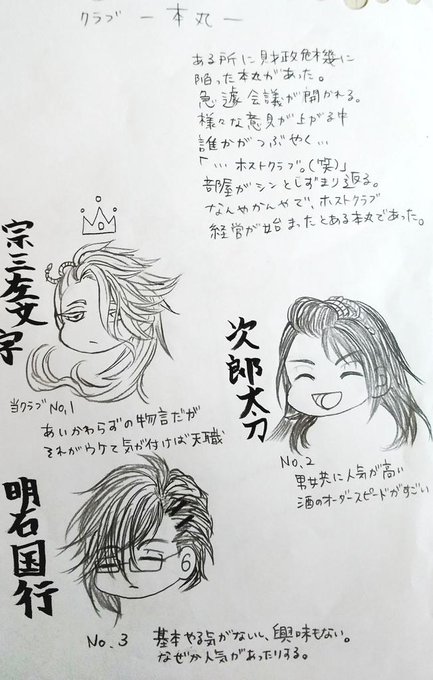 クラブ ー本丸ー
ある所に財政危機に
陥った本丸があった。
急遽会議が開かれる。
様々な意見が上がる中
誰かがつぶやく…
「…ホストクラブ。(笑)」
部屋がシンとしずまり返る。
なんやかんやで、ホストクラブ
経営が始まったとある本丸であった。
宗三左文字
当クラブNo.1
あいかわらずの物言だが
それがウケて気が付けば天職
次郎太刀
No.2
男女共に人気が高い
酒のオーダースピードがすごい
明石国行
No.3 基本やる気がないし、興味もない。
なぜか人気があったりする。